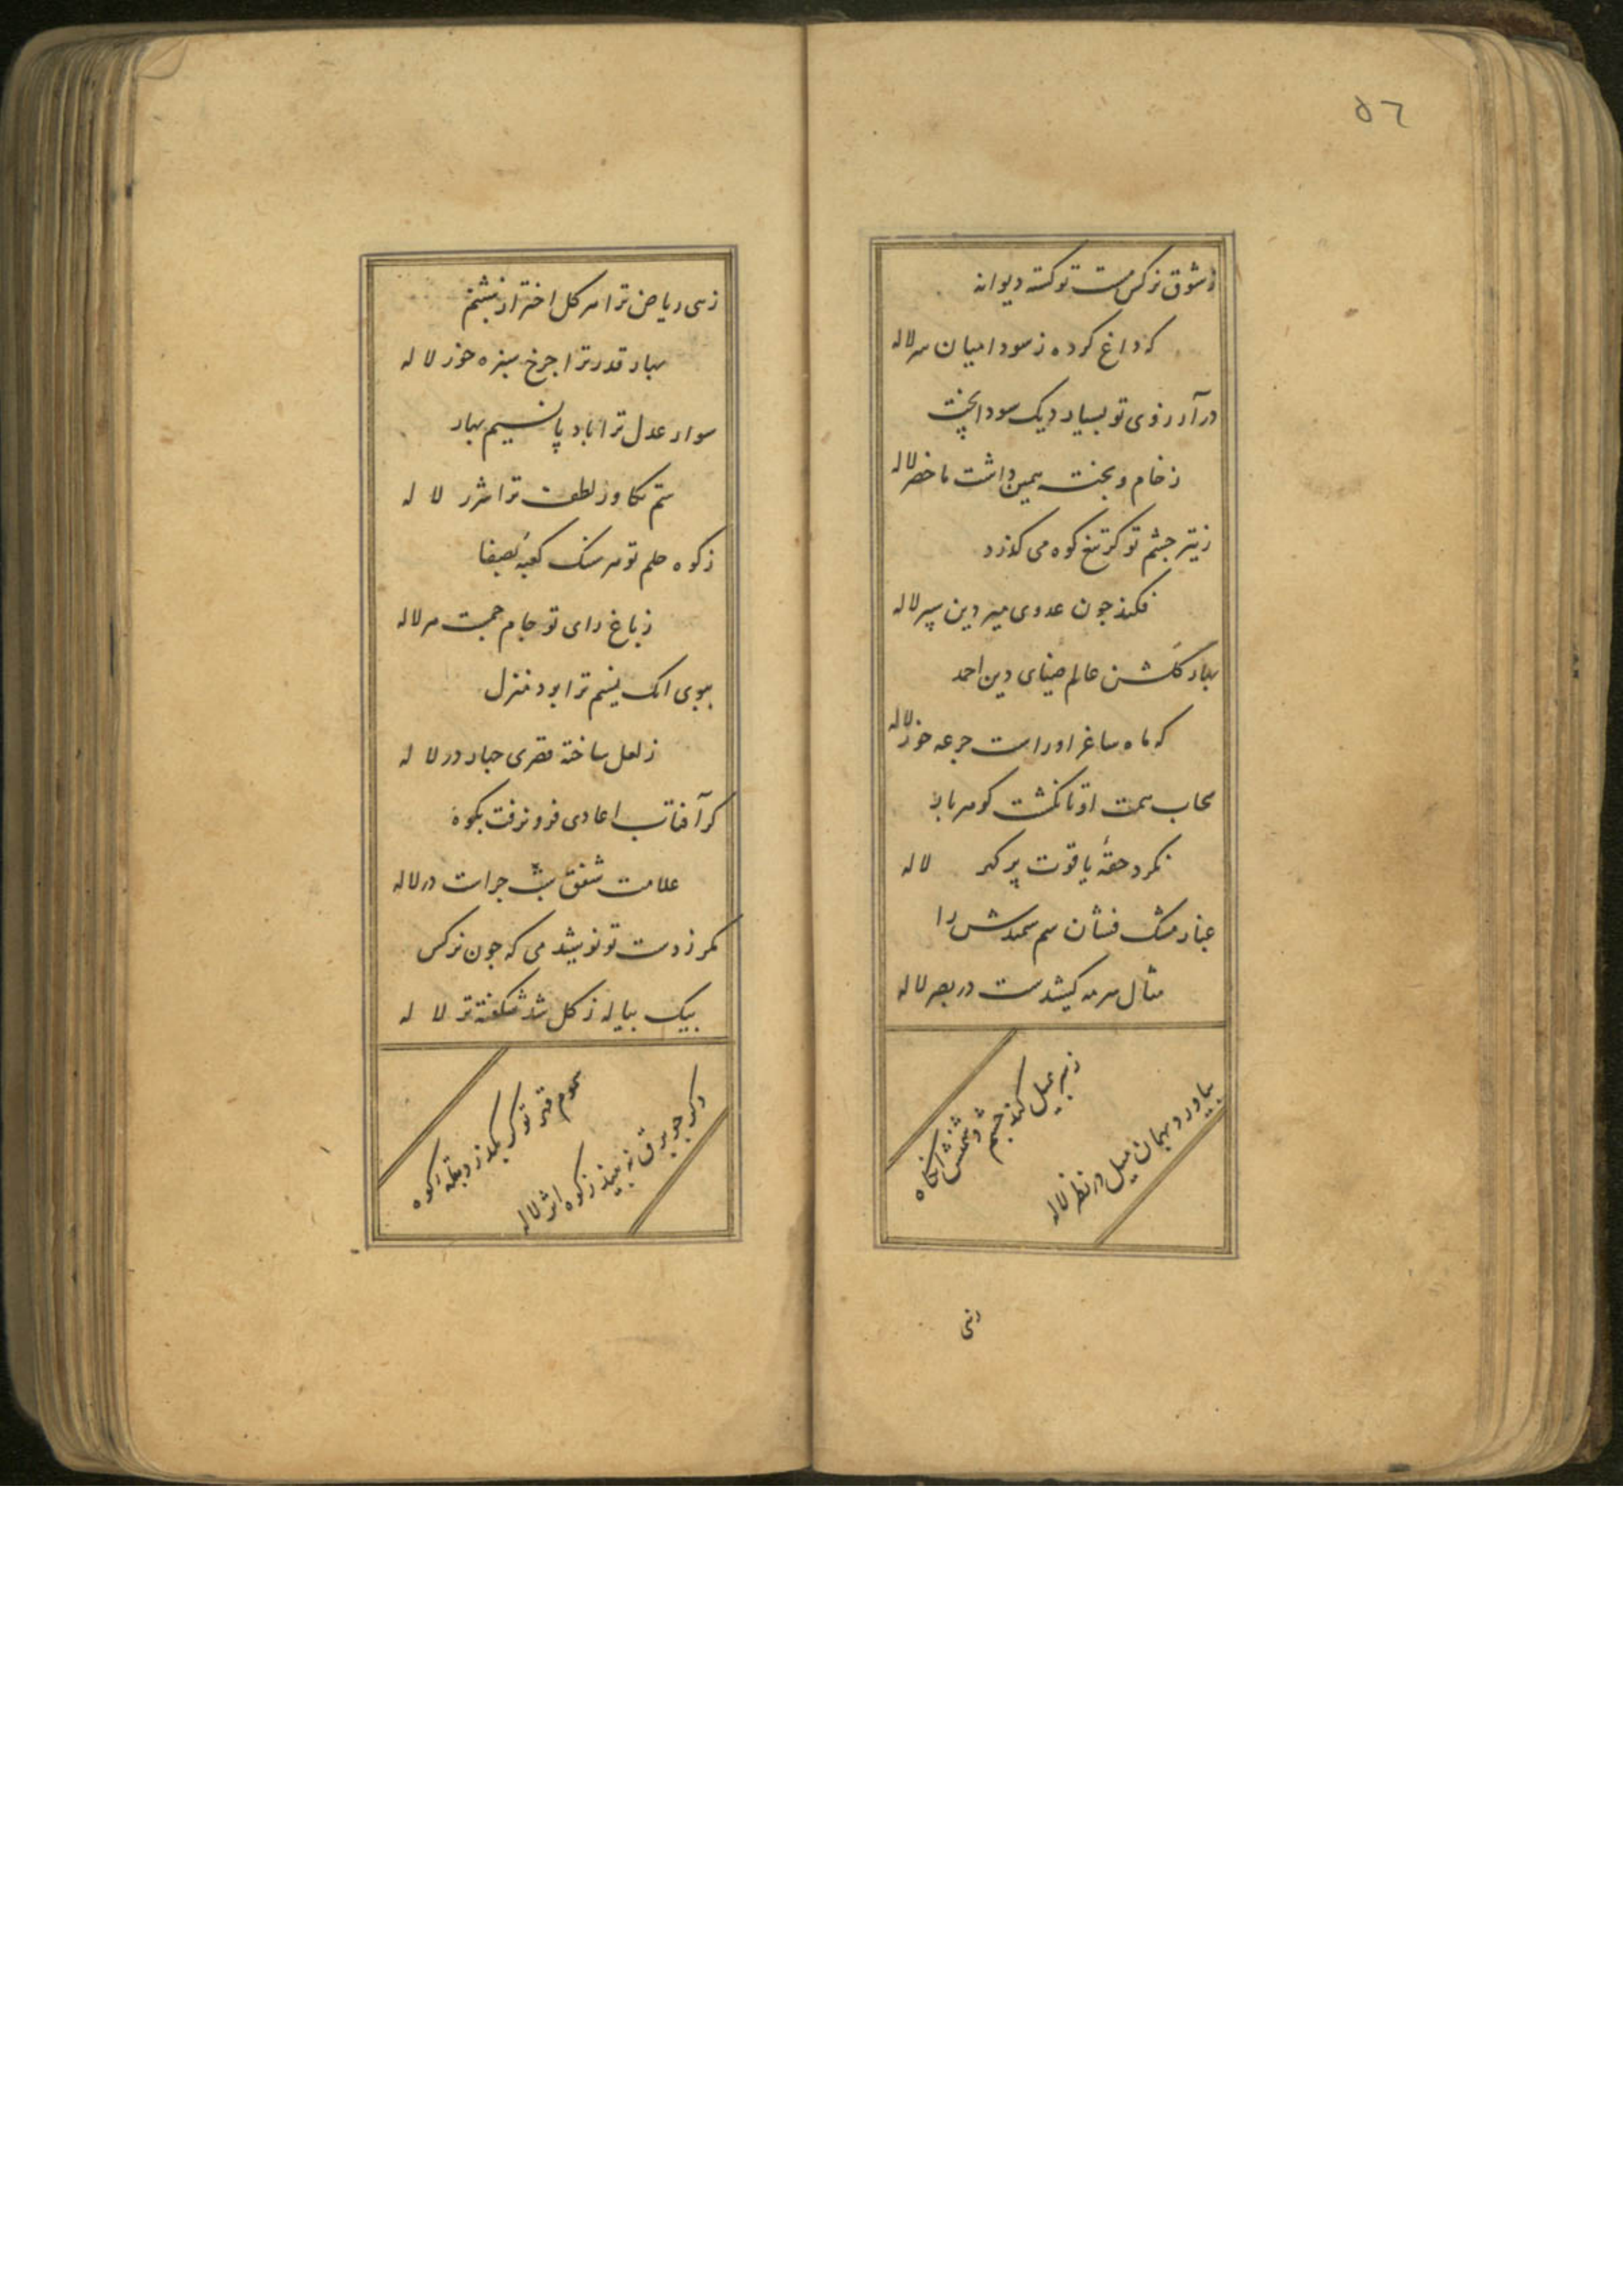 ٥٦
ز شوق نرکس مست تو کشته دیوانه
که داغ کرده ز سودا میان سر لاله
در آرزوی تو بسیار دیک سودا پخت
ز خام و پخت همین داشت ماحضر لاله
ز تیر چشم تو کز تیغ کوه می کذرد
فکند چون عدوی میر دین سپر لاله
بهار کلشن عالم ضیای دین احمد
که ماه ساغر او راست جرعه خور لاله
سحاب همت او تا نکشت کوهربار
نکرد حقهٔ یاقوت پر کهر لاله
غبار مشک فشان سم سمندش را
مثال سرمه کشیدست در بصر لاله
دشمنش آنکاه
بیاورد بهمان میل در نظر لاله
زهی
زهی ریاض ترا هر کل اختر از شبنم
بهار قدر ترا چرخ سبزه خور لاله
سواد عدل ترا باد پا نسیم بهار
ستم لطف ترا شرر لاله
ز کوه حلم تو هر سنک کعبهٔ بصفا
ز باغ رای تو جام جمست هر لاله
ببوی آنک نسیم ترا بود منزل
ز لعل ساخته قصری چهار در لاله
کر آفتاب اعادی فرو نرفت بکوه
علامت شفق شب چراست در لاله
مکر ز دست تو نوشید می که چون نرکس
بیک پیاله ز کل شد شکفته تر لاله
سموم قهر تو کر بکذرد بقلهٔ کوه
دکر چو برق نه بیند ز کوه اثر لاله